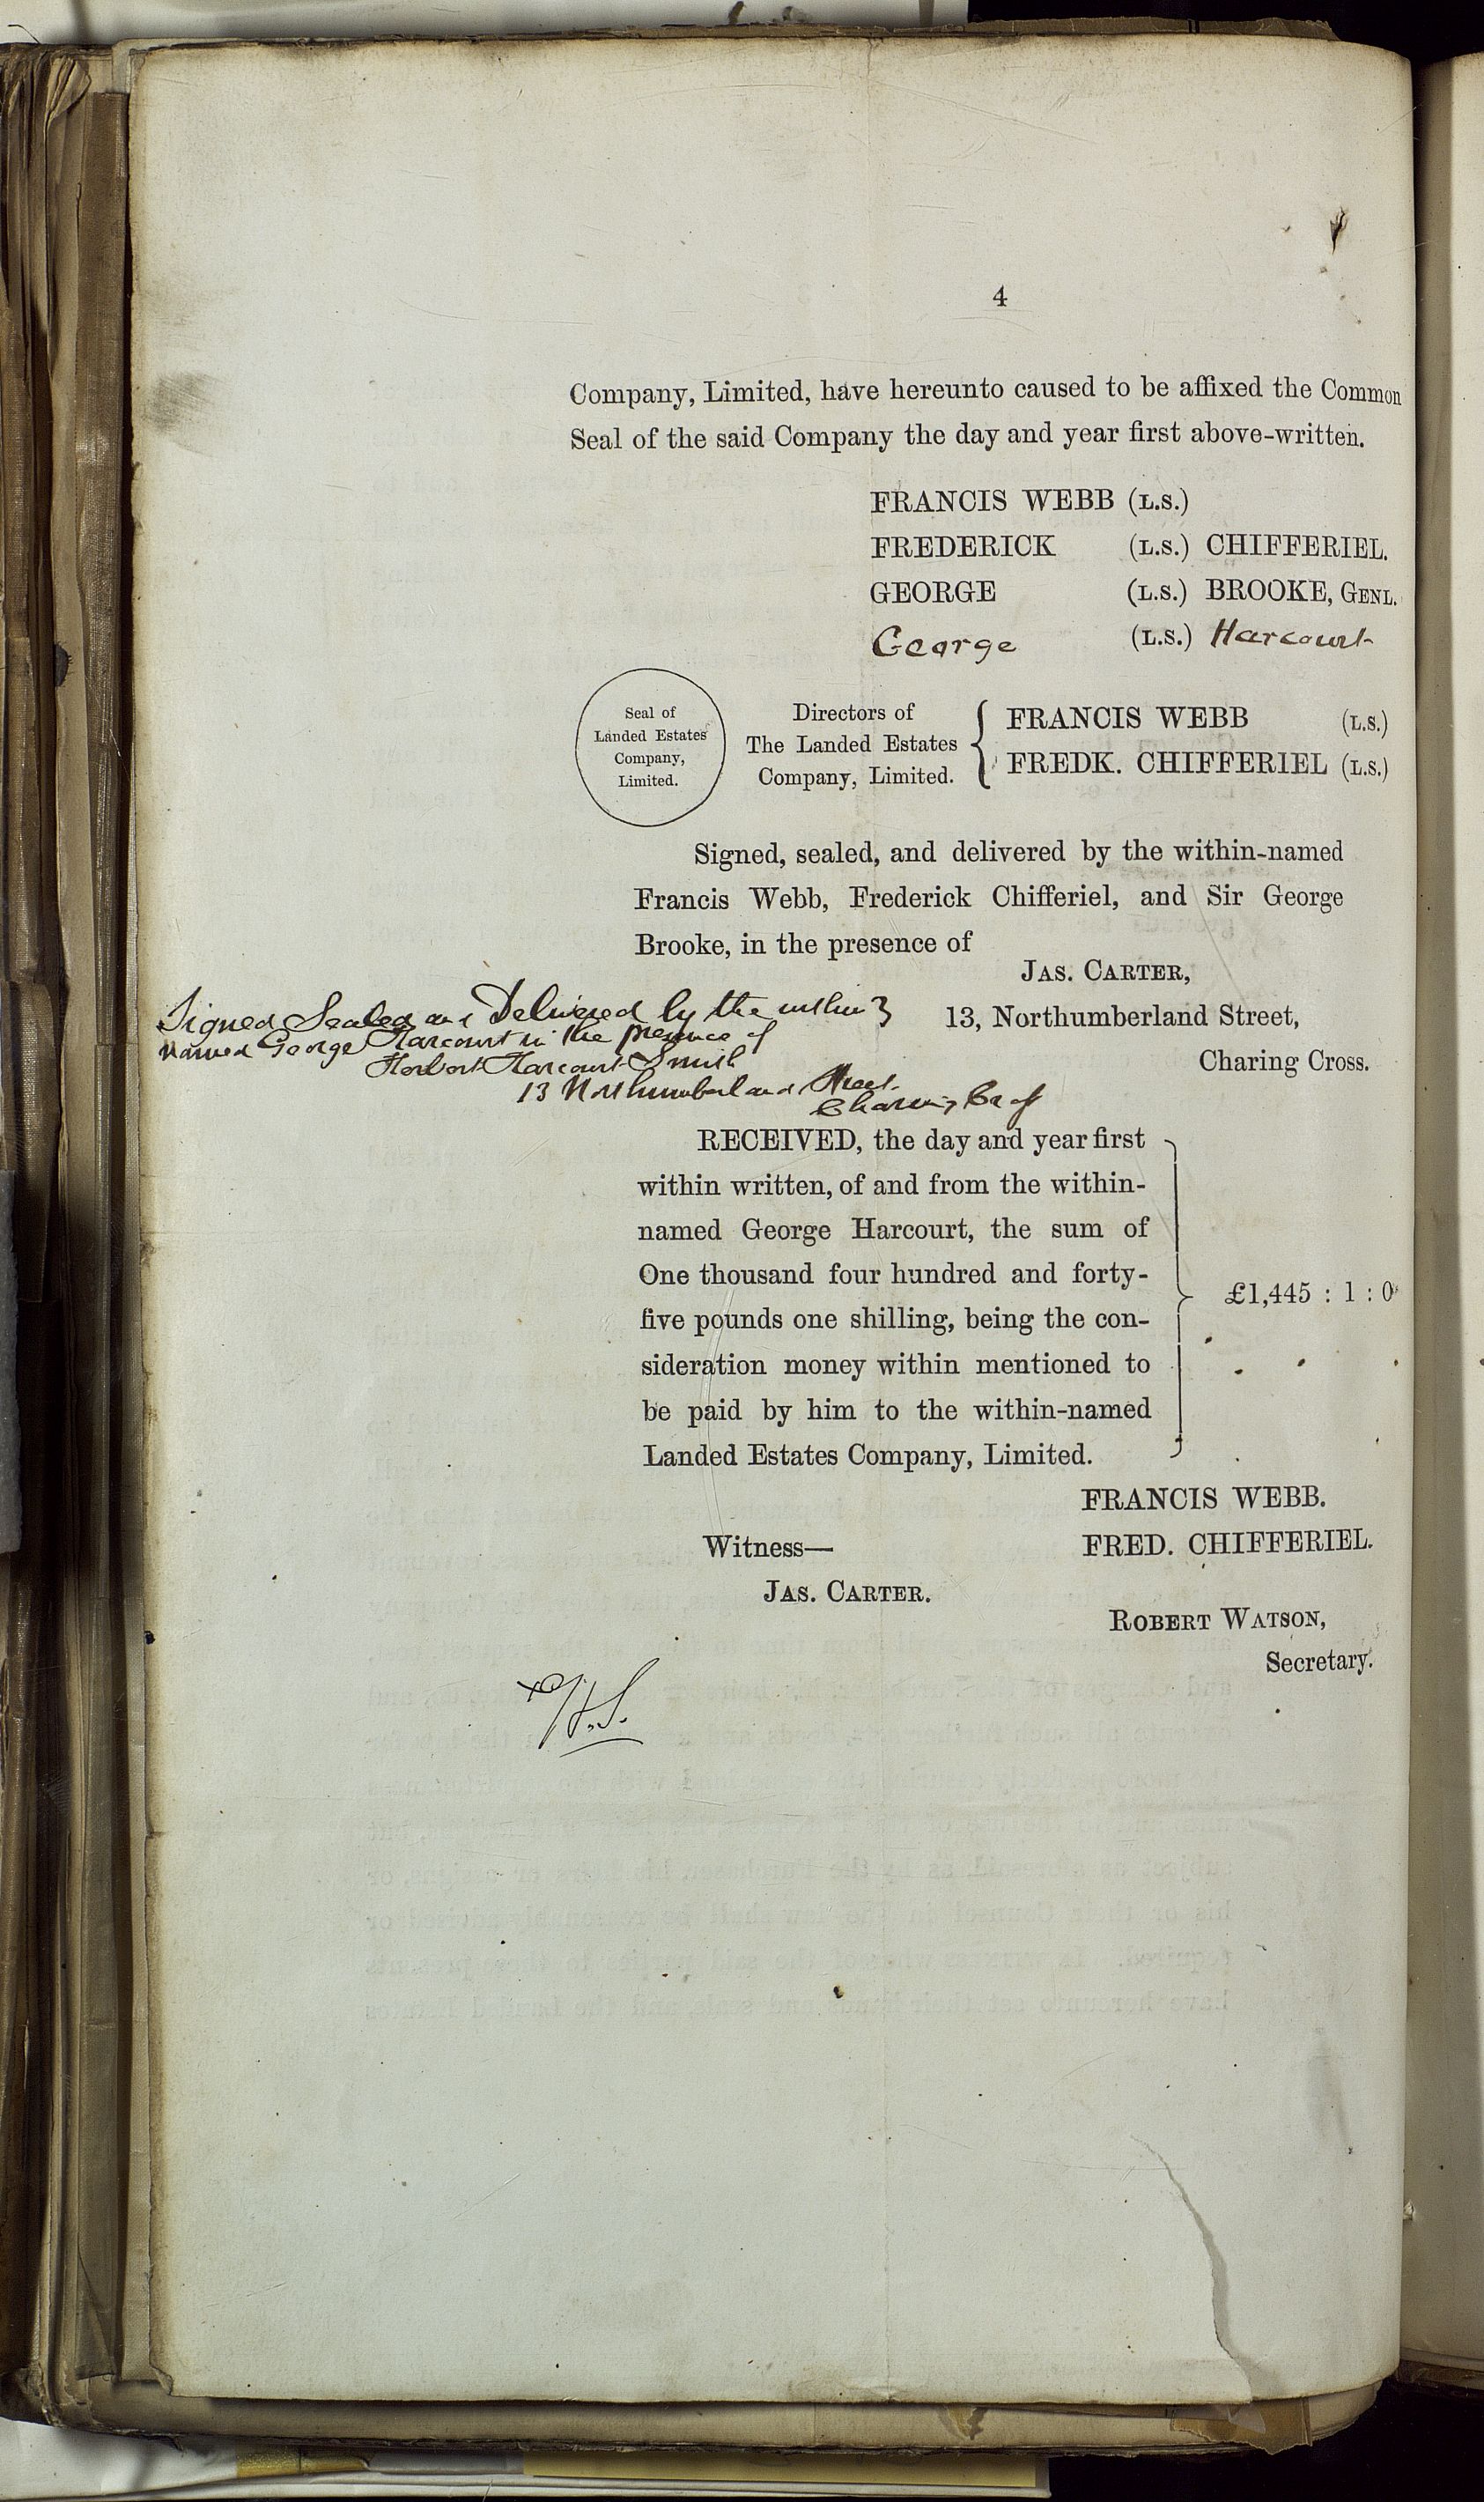 4
Company, Limited, have hereunto caused to be affixed the Common
Seal of the said Company the day and year first above-written.
FRANCIS WEBB (L.S.)
FREDERICK (L.S.) CHIFFERIEL.
GEORGE (L.S.) BROOKE, GENL.
George (L.S.) Harcourt
Seal of
Landed Estates
Company,
Limited.
Directors of
The Landed Estates
Company, Limited.
FRANCIS WEBB (L.S.)
FREDK. CHIFFERIEL (L.S.)
Signed, sealed, and delivered by the within-named
Francis Webb, Frederick Chifferiel, and Sir George
Brooke, in the presence of
JAS. CARTER,
13, Northumberland Street,
Charing Cross.
Signed Sealed and Delivered by the within
named George Harcourt in the presence of
Herbert Harcourt Smith
13 Northumberland Street
Charing Cross
RECEIVED, the day and year first
within written, of and from the within-
named George Harcourt, the sum of
One thousand four hundred and forty-
five pounds one shilling, being the con-
sideration money within mentioned to
be paid by him to the within-named
Landed Estates Company, Limited.
£1,445 : 1 : 0
FRANCIS WEBB.
FRED. CHIFFERIEL.
Witness—
JAS. CARTER.
ROBERT WATSON,
Secretary.